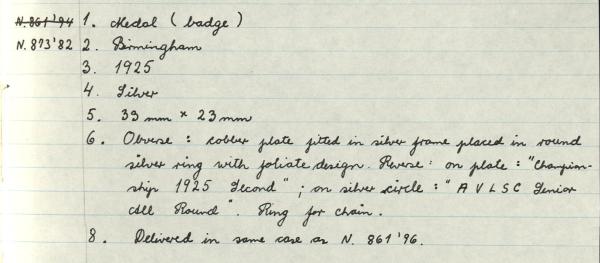 N.861'94 1. Medal (badge)
N.873'82 2. Birmingham
3. 1925
4. Silver
5. 39 mm × 23 mm
6. Obverse : cobber plate fitted in silver frame placed in round
silver ring with foliate design. Reverse: on plate : "Champion-
ship 1925 Second" ; on silver circle : "A V L S C Senior
All Round". Ring for chain.
8. Delivered in same case as N. 861'96.